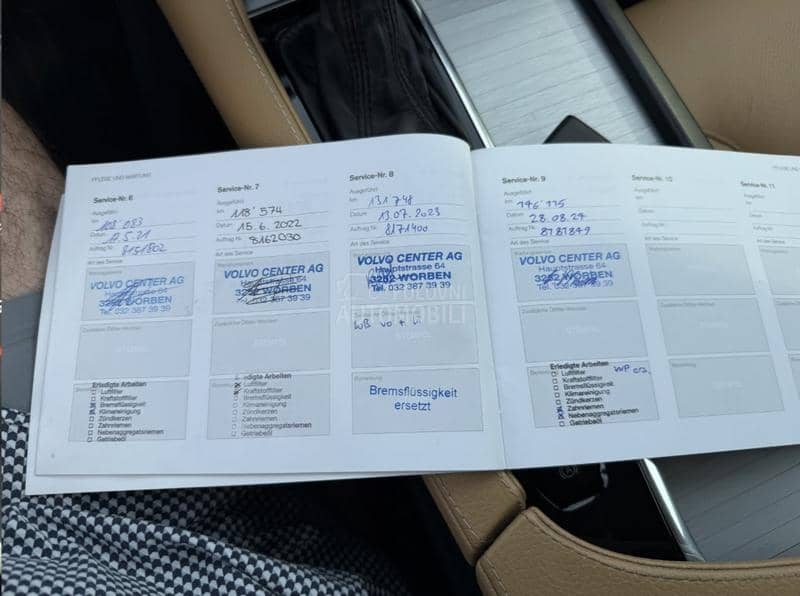 PFLEGE UND WARTUNG
Service-Nr. 6
Ausgeführt
km 108'083
Datum 12.5.21
Auftrag Nr. 8151802
Art des Service
VOLVO CENTER AG
3252 WORBEN
Tel. 032 387 39 39
Zusätzliche Ölfilter-Wechsel
STEMPEL
Erledigte Arbeiten
Luftfilter
Kraftstoffilter
Bremsflüssigkeit
Klimareinigung
Zündkerzen
Zahnriemen
Nebenaggregatsriemen
Getriebeöl
Service-Nr. 7
Ausgeführt
km 118'574
Datum 15.6.2022
Auftrag Nr. 8162030
Art des Service
VOLVO CENTER AG
Hauptstrasse 64
3252 WORBEN
032 387 39 39
STEMPEL
Erledigte Arbeiten
Luftfilter
Kraftstoffilter
Bremsflüssigkeit
Klimareinigung
Zündkerzen
Zahnriemen
Nebenaggregatsriemen
Getriebeöl
Service-Nr. 8
Ausgeführt
km 131'748
Datum 13.07.2023
Auftrag Nr. 8171400
Art des Service
VOLVO CENTER AG
Hauptstrasse 64
3252 WORBEN
Tel. 032 387 39 39
POLOVNI
AUTOMOBILI
WB vo + hi
Bemerkung
Bremsflüssigkeit
ersetzt
Service-Nr. 9
Ausgeführt
km 146'115
Datum 28.08.24
Auftrag Nr. 8181849
Art des Service
VOLVO CENTER AG
Hauptstrasse 64
3252 WORBEN
Tel. 032 387 39 39
Zusätzliche Ölfilter-Wechsel
STEMPEL
Erledigte Arbeiten
Luftfilter
Kraftstoffilter
Bremsflüssigkeit
Klimareinigung
Zündkerzen
Zahnriemen
Nebenaggregatsriemen
Getriebeöl
Service-Nr. 10
Ausgeführt
km
Datum
Auftrag Nr.
Art des Service
STEMPEL
Service-Nr. 11
Ausgeführt
km
Datum
Auftrag Nr.
Art des Service